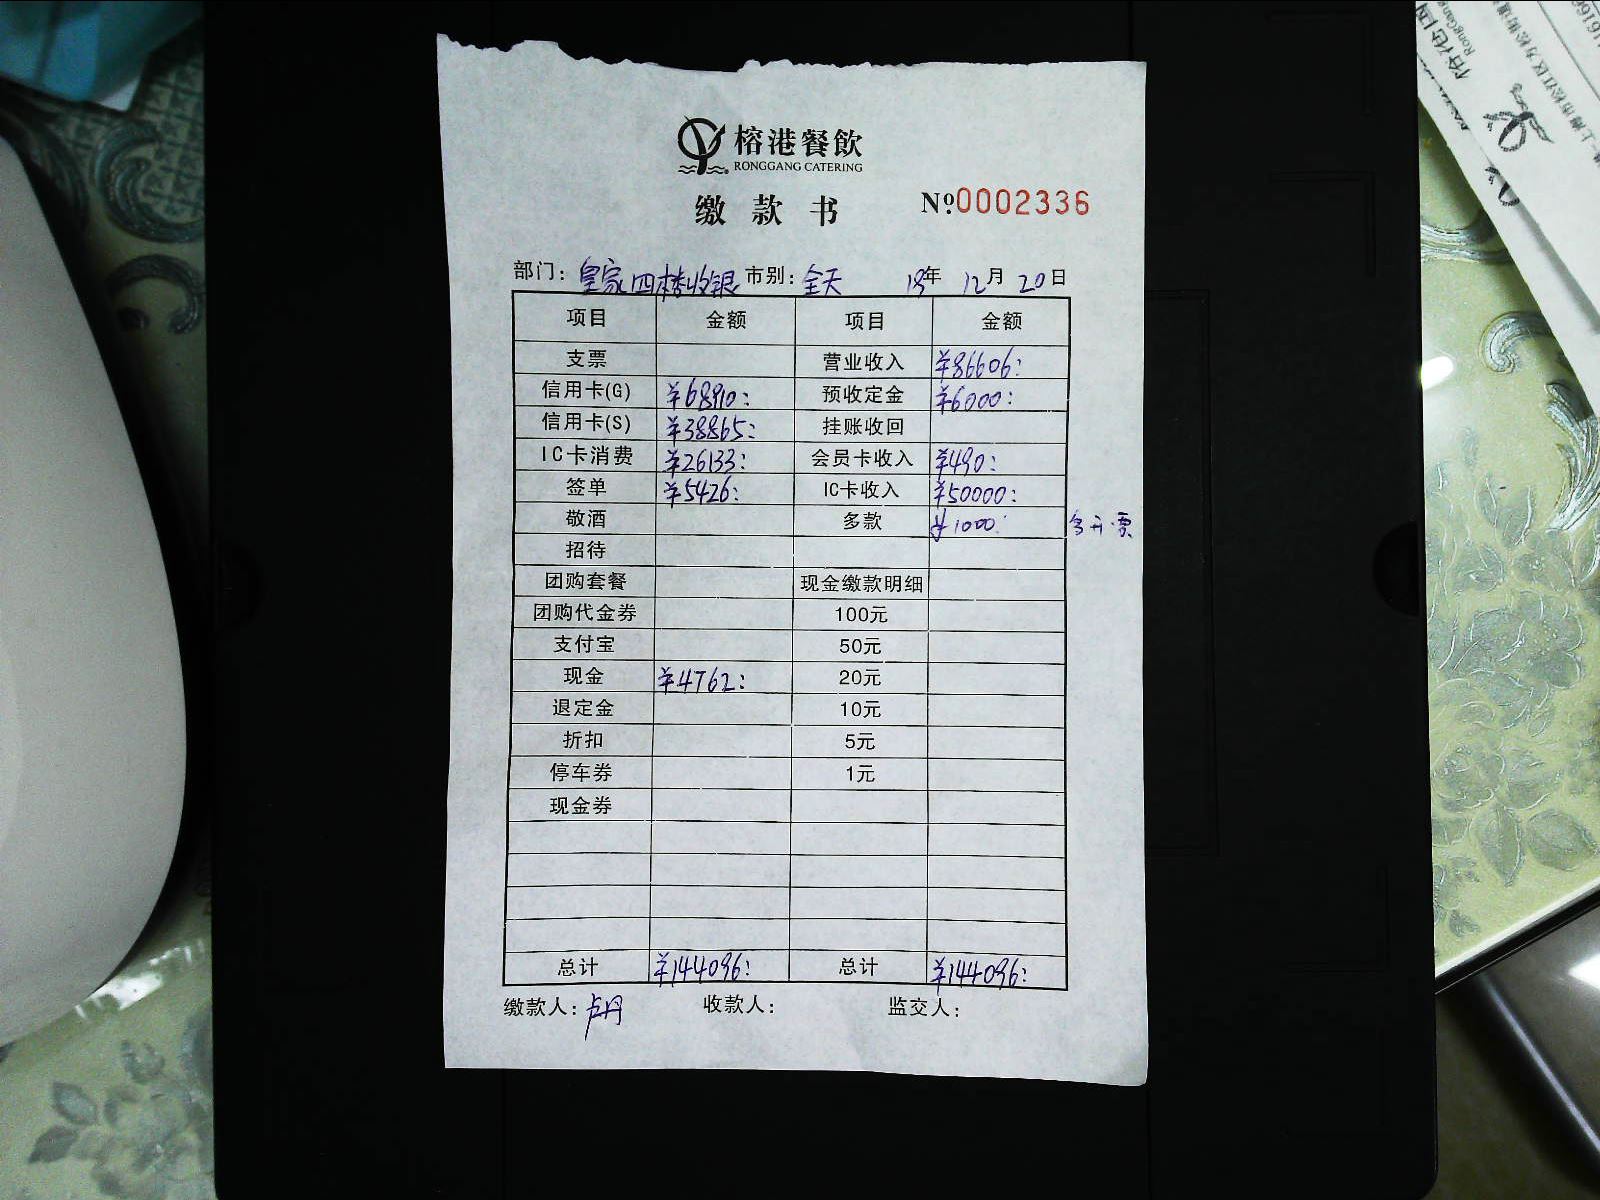 榕港餐飲
RONGGANG CATERING
缴款书 Nº.0002336
部门:皇家四楼收银 市别:全天 18年 12月 20日
项目 金额 项目 金额
支票 营业收入 ¥86606:
信用卡(G) ¥68910: 预收定金 ¥6000:
信用卡(S) ¥38865: 挂账收回
IC卡消费 ¥26133: 会员卡收入 ¥490:
签单 ¥5426: IC卡收入 ¥50000:
敬酒 多款 ¥1000: 多开票
招待
团购套餐 现金缴款明细
团购代金券 100元
支付宝 50元
现金 ¥4762: 20元
退定金 10元
折扣 5元
停车券 1元
现金券
总计 ¥144096: 总计 ¥144096:
缴款人:卢丹 收款人: 监交人: